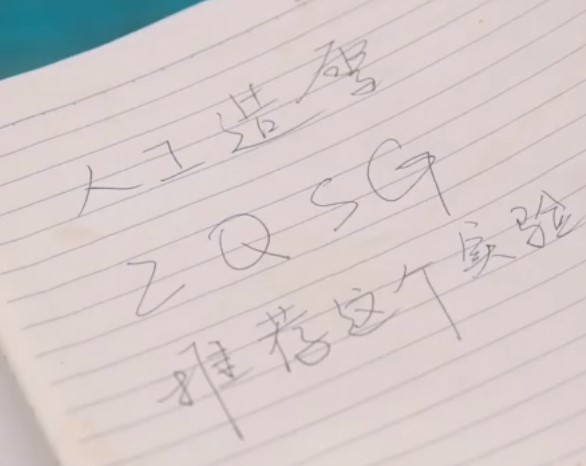 人工造雪
ZQSG
推荐这个实验